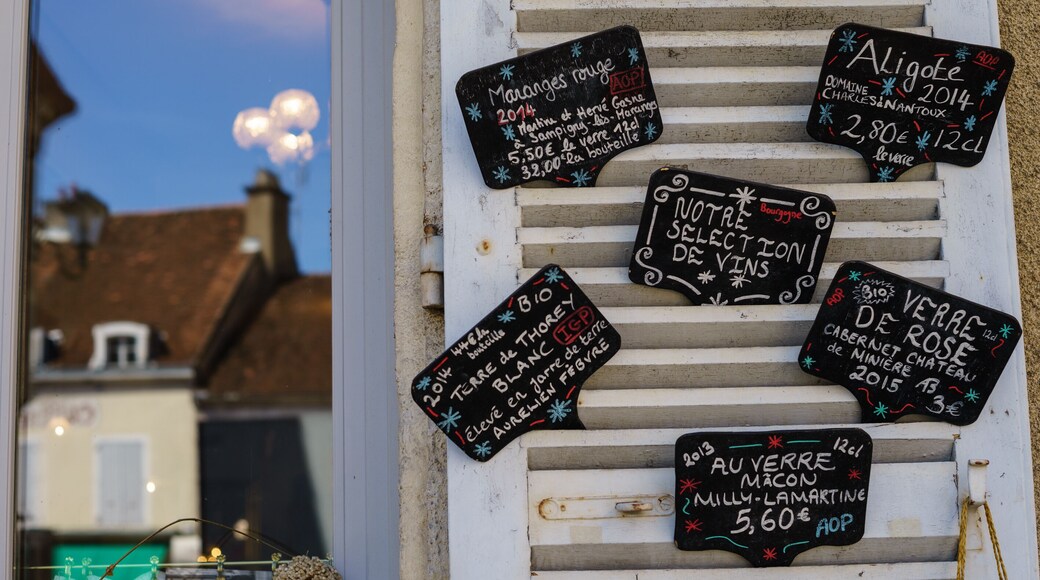 Maranges rouge
2014 AOP!
Martine et Hervé Gasne
à Sampigny-lès-Maranges
5,50€ le verre 12cl
32,00€ la bouteille
ALigotE AOP
2014
DOMAINE
CHARLES & NANTOUX
2,80€ 12cl
le verre
NOTRE Bourgogne
SELECTION
DE VINS
44€ la BIO
bouteille
2014 TERRE de THOREY
BLANC IGP
élevé en jarre de terre
AURELIEN FÈBVRE
AOP BIO VERRE 12cl
DE ROSÉ
CABERNET CHATEAU
de MINIÈRE
2015
3€
2013 12cl
AU VERRE
MÂCON
MILLY-LAMARTINE
5,60€ AOP